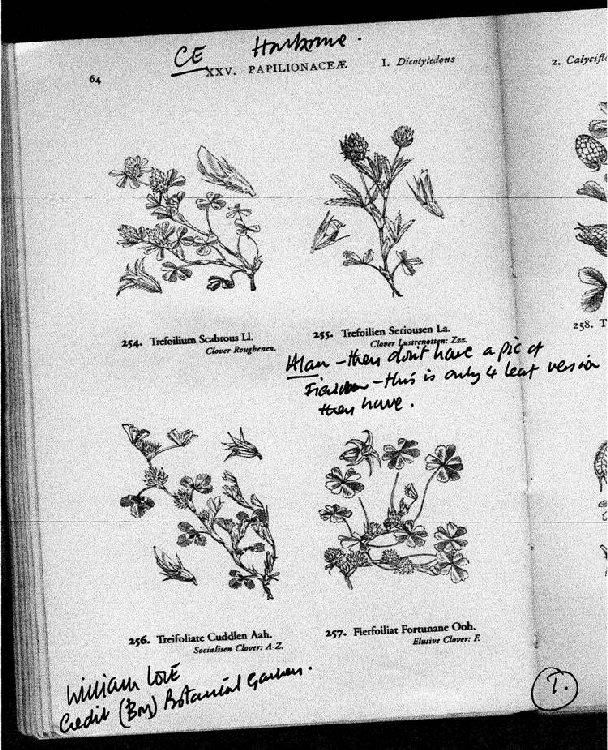 CE Harborne.
64 XXV. PAPILIONACEÆ 1. Dicotyledons
2. Calycifl
254. Trefoilium Scabrous Ll.
Clover Roughenen.
255. Trefoilien Seriousen La.
Clover : Zzz.
258. T
Alan - they don't have a pic of
- this is only 4 leaf version
they have.
256. Treifoliate Cuddlen Aah.
Socialisen Clover: A-Z.
257. Fierfoiliat Fortunane Ooh.
Elusive Clover: F.
William Love
Credit (Bon) Botanical Gardens.
1.